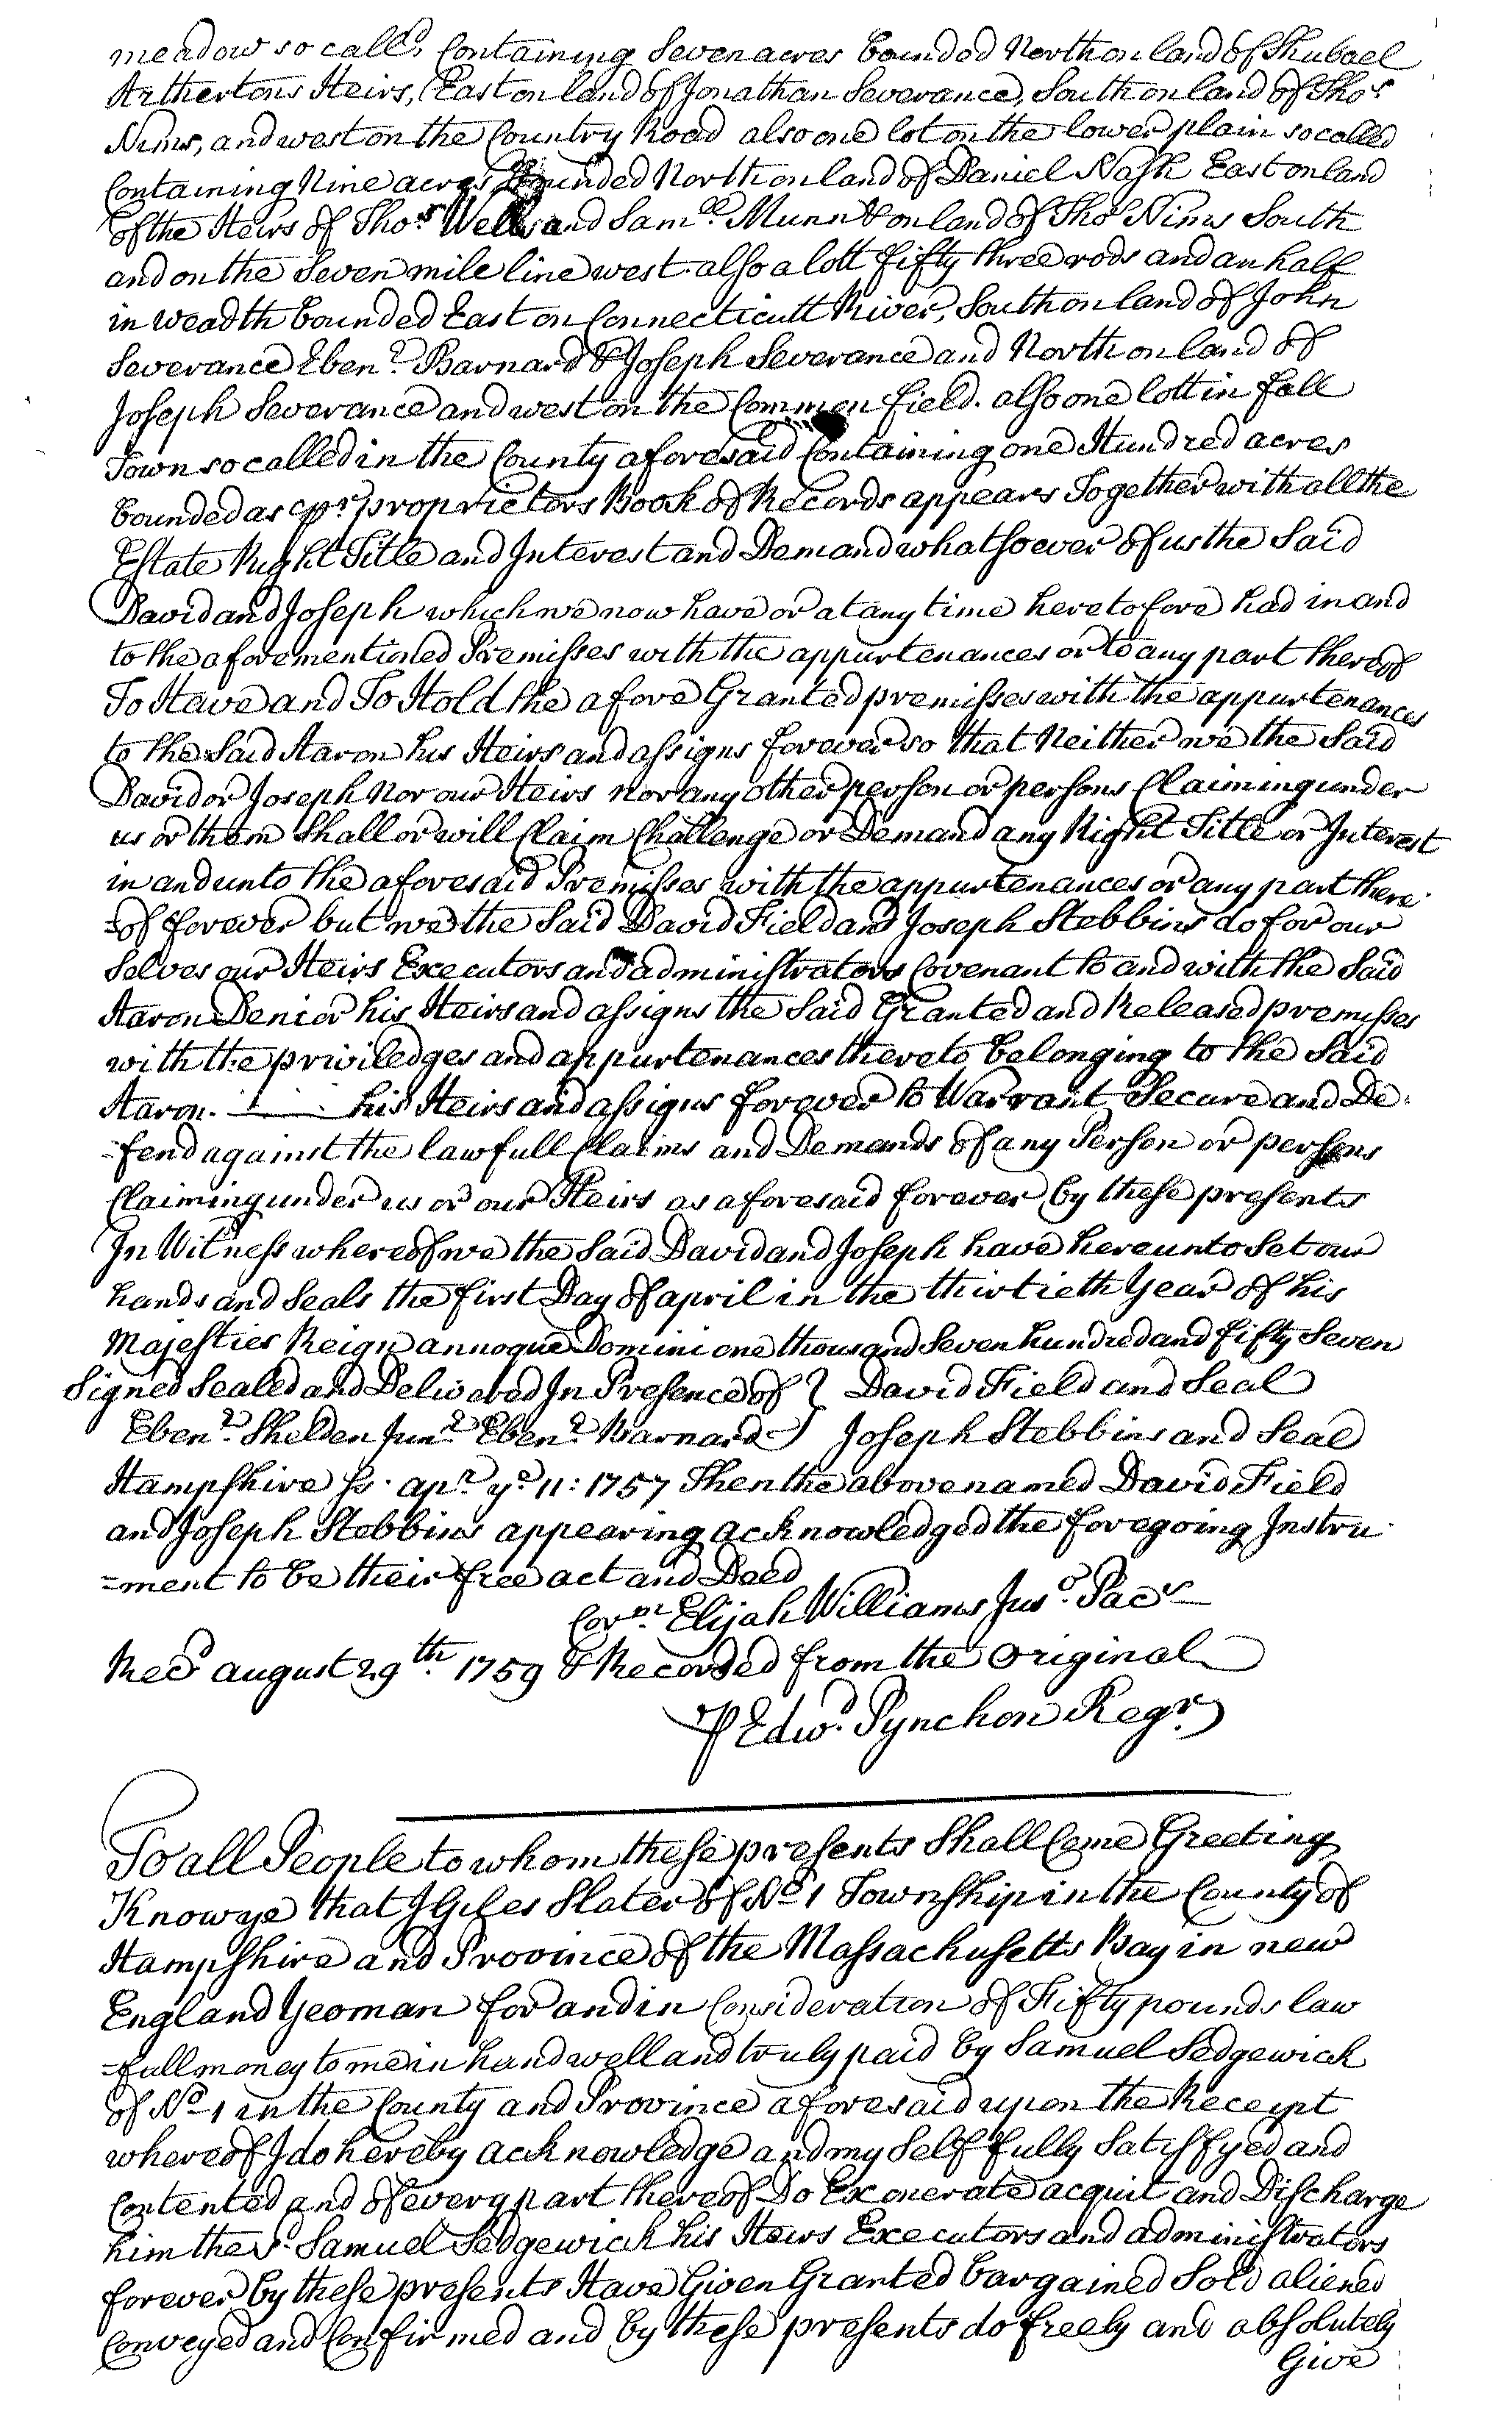 meadow so calld, Containing Seven acres bounded North on land of Shubael
Arthertons Heirs, East on land of Jonathan Severance, South on land of Thos
Nims, and west on the Country Road also one lot on the lower plain so called
Containing Nine acres Bounded North on land of Daniel Nash East on land
of the Heirs of Thos Wells and Samll Munn & on land of Thos Nims South
and on the Seven mile line west. also a lott fifty three rods and an half
in weadth bounded East on Connecticutt River, South on land of John
Severance Ebenr Barnard & Joseph Severance and North on land of
Joseph Severance and west on the Common field. also one lott in fall
Town so called in the County aforesaid Containing one Hundred acres
bounded as pr proprietors Book of Records appears Together with all the
Estate Right Title and Interest and Demand whatsoever of us the Said
David and Joseph which we now have or at any time heretofore had in and
to the aforementioned Premisses with the appurtenances or to any part thereof
To Have and To Hold the afore Granted premisses with the appurtenances
to the Said Aaron his Heirs and assigns forever so that Neither we the Said
David or Joseph Nor our Heirs nor any other person or persons Claiming under
us or them Shall or will Claim Challenge or Demand any Right Title or Interest
in and unto the aforesaid Premisses with the appurtenances or any part there
=of forever but we the Said David Field and Joseph Stebbins do for our
Selves our Heirs Executors and administrators Covenant to and with the Said
Aaron Denior his Heirs and assigns the Said Granted and Released premisses
with the priviledges and appurtenances thereto belonging to the Said
Aaron. his Heirs and assigns forever to Warrant Secure and De=
=fend against the lawfull Claims and Demands of any Person or persons
Claiming under us or our Heirs as aforesaid forever by these presents
In Witness whereof we the Said David and Joseph have hereunto Set our
hands and Seals the first Day of april in the thirtieth Year of his
Majesties Reign annoque Domini one thousand Seven hundred and fifty Seven
Signed Sealed and Delivered In Presence of } David Field and Seal
Ebenr Shelden Junr Ebenr Barnard } Joseph Stebbins and Seal
Hampshire Ss. apr ye 11: 1757 Then the above named David Field
and Joseph Stebbins appearing acknowledged the foregoing Instru
=ment to be their free act and Deed
Corm Elijah Williams Jusd Pacs
Recd august 29th 1759 & Recorded from the Original
P Edwd Pynchon Regr
To all People to whom these presents Shall Come Greeting
Know ye that I Giles Slater of No 1 Township in the County of
Hampshire and Province of the Massachusetts Bay in new
England Yeoman for and in Consideration of Fifty pounds law
=full money to me in hand well and truly paid by Samuel Sedgewick
of No 1 in the County and Province aforesaid upon the Receipt
whereof I do hereby acknowledge and my Self fully Satisfyed and
Contented and of every part thereof Do Exonerate acquit and Discharge
him the sd Samuel Sedgewick his Heirs Executors and administrators
forever by these presents Have Given Granted bargained Sold aliened
Conveyed and Confirmed and by these presents do freely and absolutely
Give